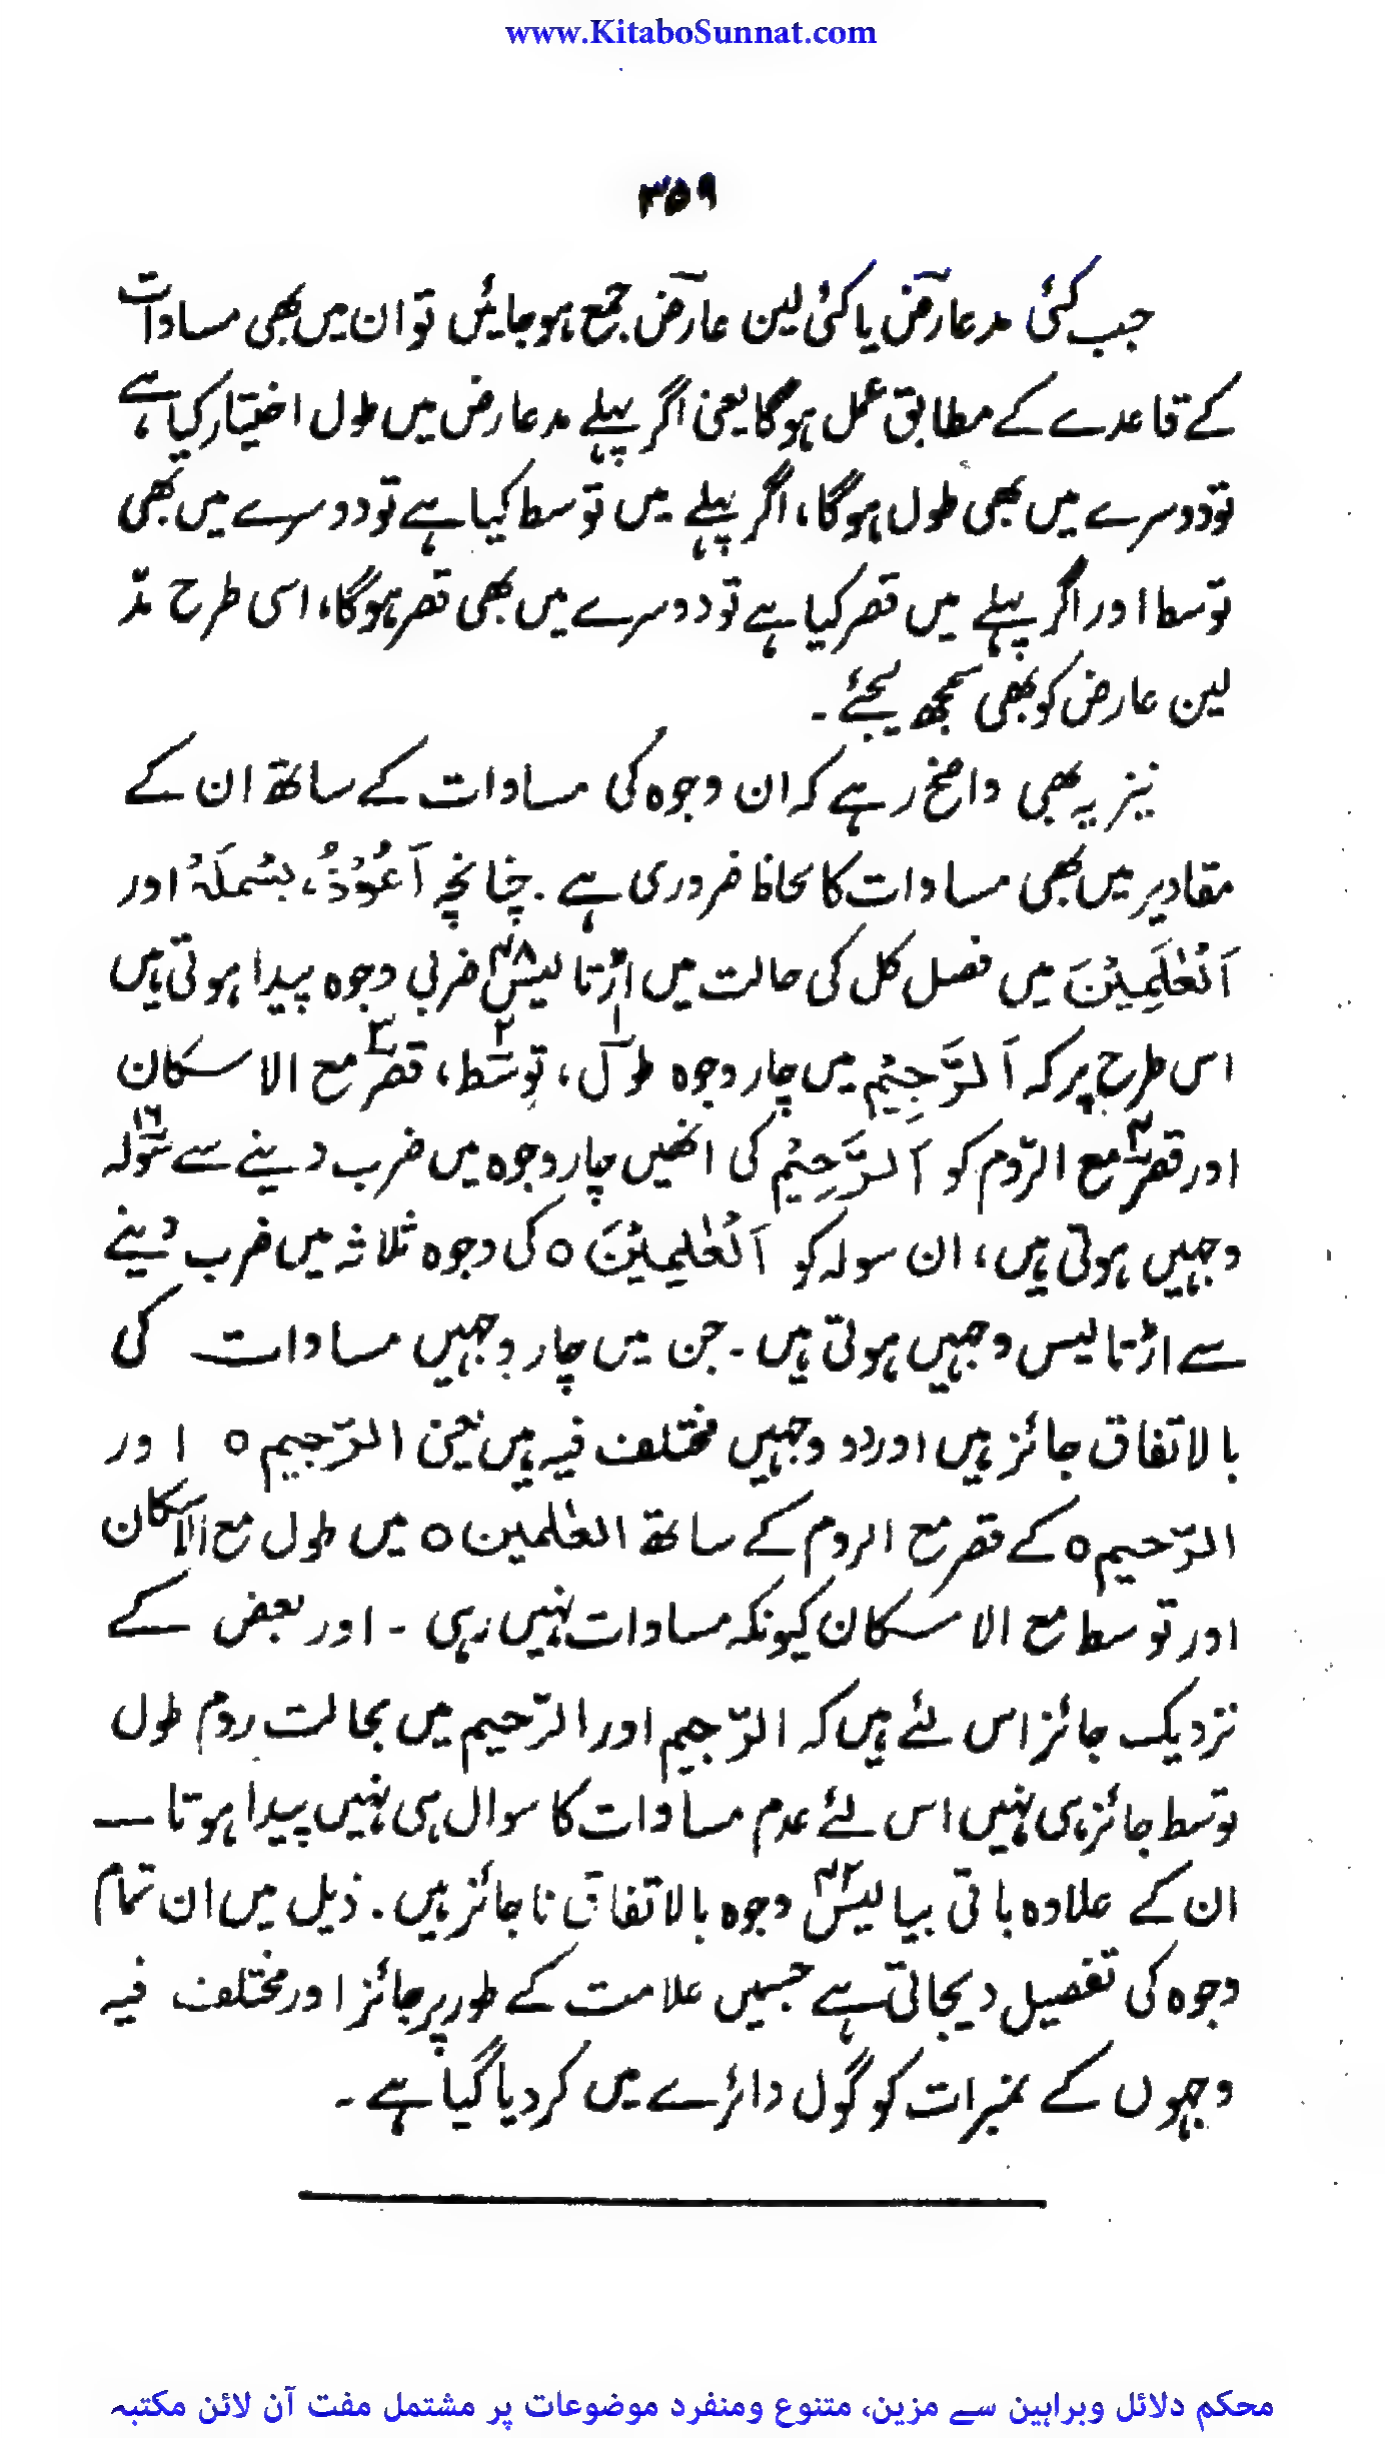 www.KitaboSunnat.com
۳۵۹
جب کئی مد عارض یا کئی لین عارض جمع ہو جائیں تو ان میں بھی مساوات
کے قاعدے کے مطابق عمل ہوگا یعنی اگر پہلے مد عارض میں طول اختیار کیا ہے
تو دوسرے میں بھی طول ہوگا، اگر پہلے میں توسط کیا ہے تو دوسرے میں بھی
توسط اور اگر پہلے میں قصر کیا ہے تو دوسرے میں بھی قصر ہوگا، اسی طرح مدّ
لین عارض کو بھی سمجھ لیجئے ۔
نیز یہ بھی واضح رہے کہ ان وجوہ کی مساوات کے ساتھ ان کے
مقادیر میں بھی مساوات کا لحاظ ضروری ہے ۔ چنانچہ اَعُوْذُ، بَسْمَلَہْ اور
اَلْعٰلَمِیْنَ میں فصل کل کی حالت میں اڑتالیس ۴۸ ضربی وجوہ پیدا ہوتی ہیں
اس طرح پر کہ اَلرَّجِیْمِ میں چار وجوہ طول ۱، توسط ۲، قصر ۳ مع الاسکان
اور قصر ۴ مع الرّوم کو اَلرَّحِیْمِ کی انھیں چار وجوہ میں ضرب دینے سے سولہ ۱۶
وجہیں ہوتی ہیں، ان سولہ کو اَلْعٰلَمِیْنَ ○ کی وجوہ ثلاثہ میں ضرب دینے
سے اڑتالیس وجہیں ہوتی ہیں ۔ جن میں چار وجہیں مساوات کی
بالاتفاق جائز ہیں اور دو وجہیں مختلف فیہ ہیں یعنی الرّجیم ○ اور
الرّحیم ○ کے قصر مع الروم کے ساتھ العٰلمین ○ میں طول مع الاسکان
اور توسط مع الاسکان کیونکہ مساوات نہیں رہی ۔ اور بعض کے
نزدیک جائز اس لئے ہیں کہ الرّجیم اور الرّحیم میں بحالت روم طول
توسط جائز ہی نہیں اس لئے عدم مساوات کا سوال ہی نہیں پیدا ہوتا ــ
ان کے علاوہ باقی بیالیس ۴۲ وجوہ بالاتفاق ناجائز ہیں ۔ ذیل میں ان تمام
وجوہ کی تفصیل دیجاتی ہے جسمیں علامت کے طور پر جائز اور مختلف فیہ
وجہوں کے نمبرات کو گول دائرے میں کر دیا گیا ہے ۔
محکم دلائل وبراہین سے مزین، متنوع ومنفرد موضوعات پر مشتمل مفت آن لائن مکتبہ